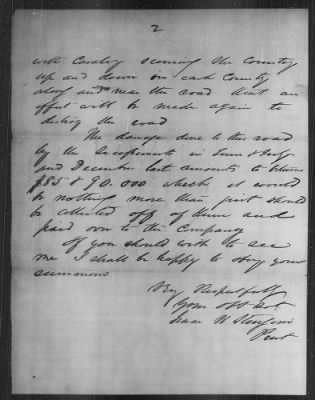 2
with Cavalry scouring the Country
up and down on each County
along and near the road that an
effort will be made again to
destroy the road
The damage done to this road
by the in June & July
and December last amounts to between
$85 & 90.000 which it would
be nothing more than just should
be collected off of them and
paid over to the Company
If you should wish to see
me I shall be happy to obey your
summons
Very Respectfully
Your Obt Svt.
Isaac H Sturgeon
Prest